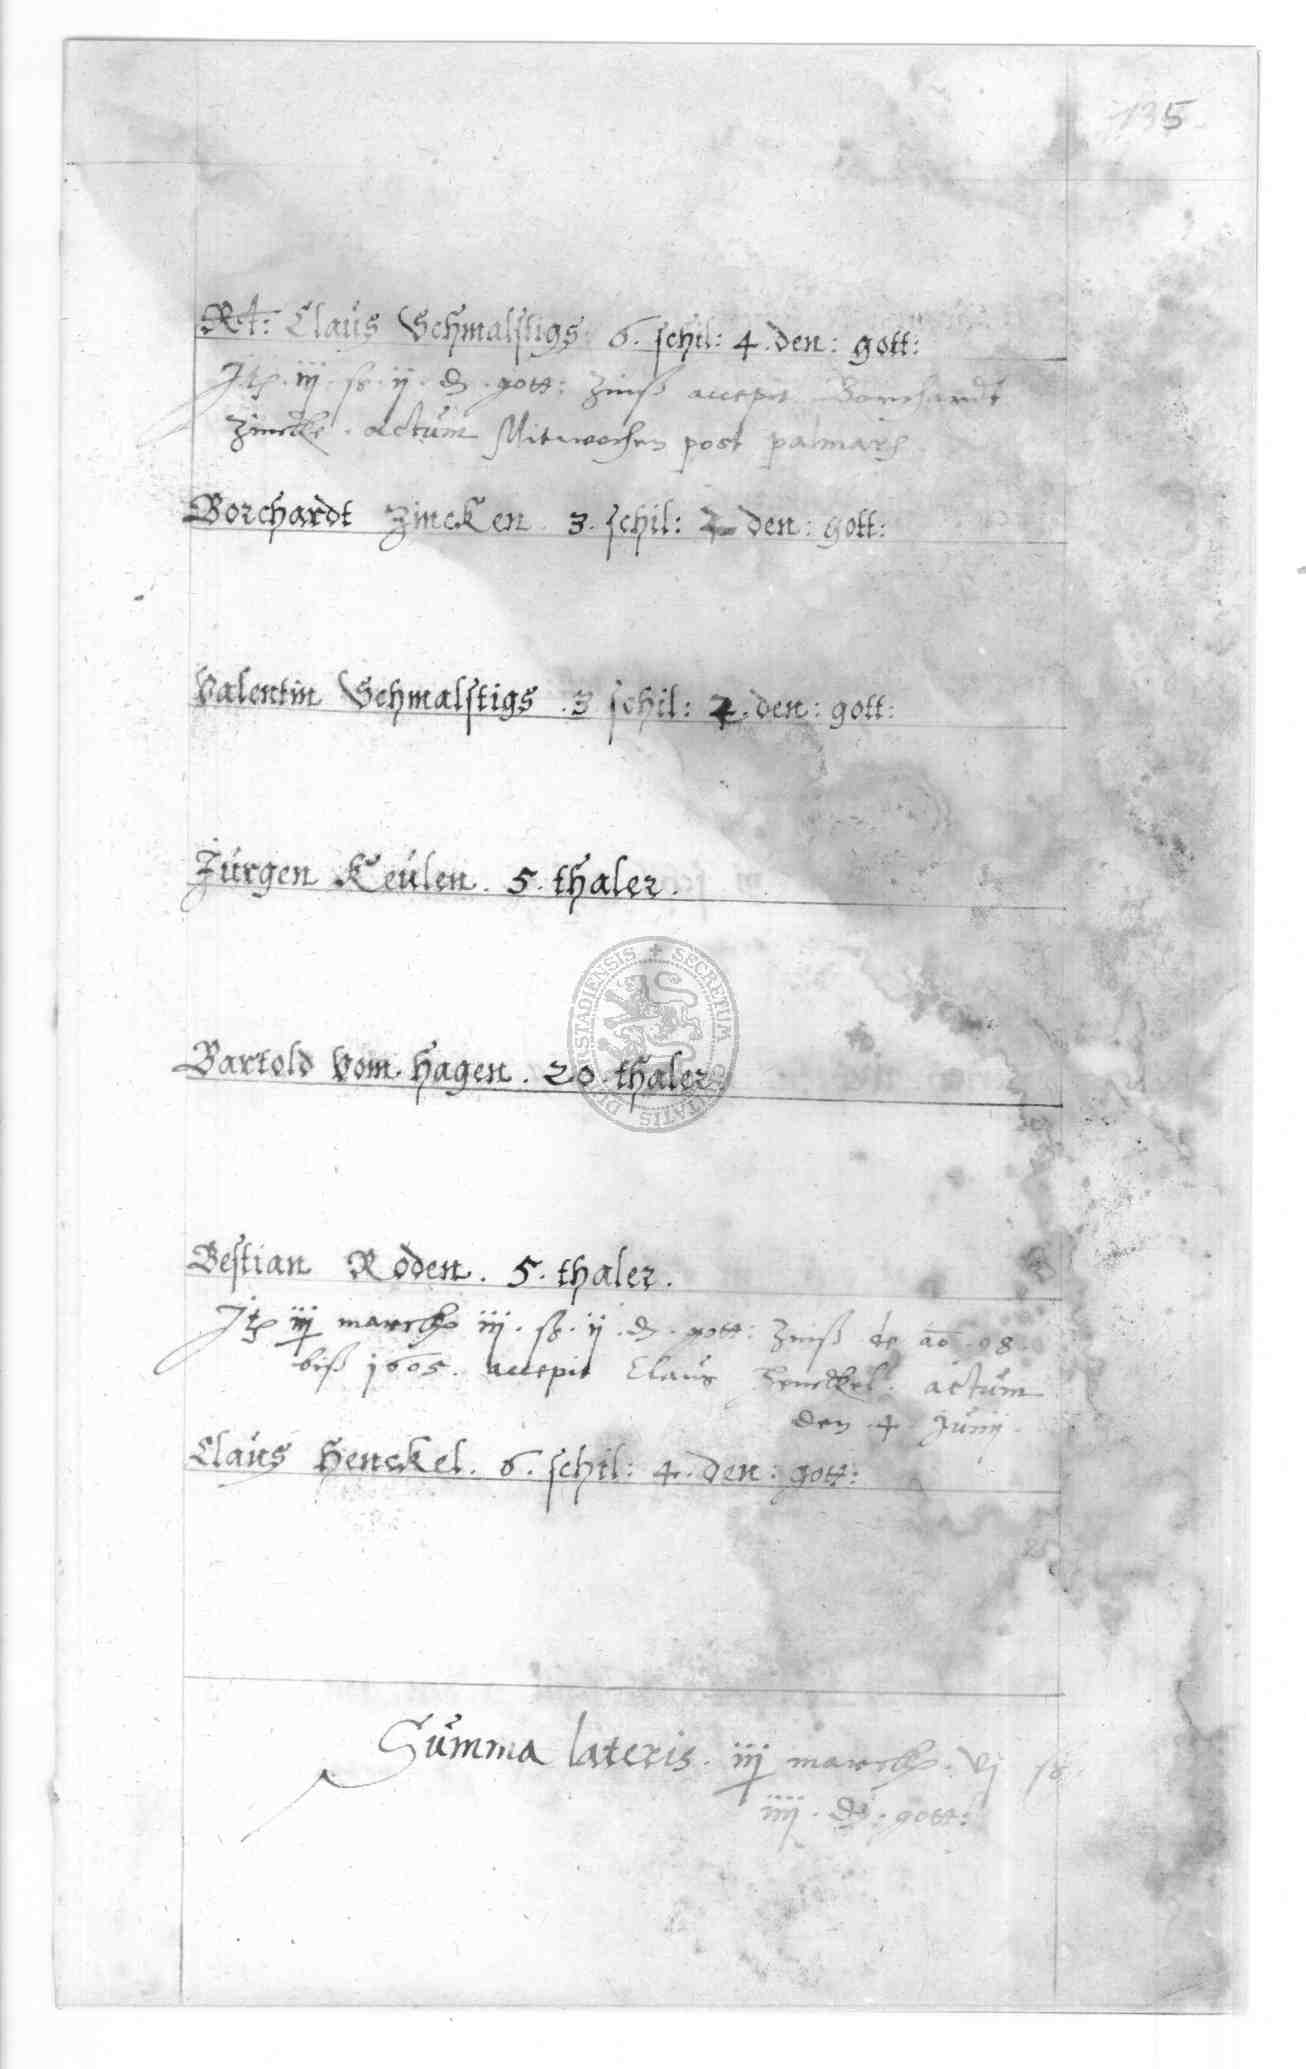 135
Rt: Claus Schmalstigs 6. schil: 4. den: gott:
It iij. ß. ij. d. gott: Zinß accepit Borchardt
Zincke. actum Mitwochen post palmar
Borchardt Zincken. 3. schil: 2 den: gott:
Valentin Schmalstigs. 3 schil: 2. den: gott:
Jürgen Keulen. 5. thaler.
Bartold Vom. Hagen. 20. thaler.
DVDERSTADIENSIS + SECRETUM CIVITATIS
Bestian Roden. 5. thaler.
It iij marck iij. ß. ij. d. gott: Zinß de ao 98.
biß 1605. accepit Claus Henckel. actum
den 4 Junij.
Claus Henckel. 6. schil: 4. den: gott:
Summa lateris. iij marck. vj ß.
iiij. d. gott: